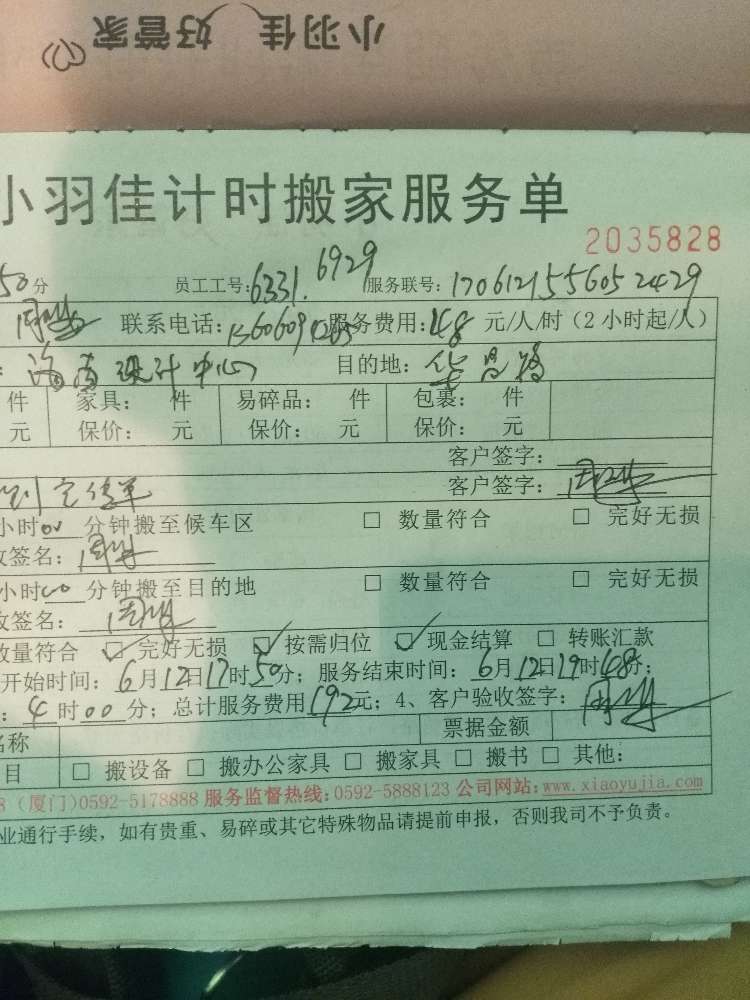 小羽佳 好管家
小羽佳计时搬家服务单
2035828
50分 员工工号:6331. 6929 服务联号:1706121556052429
联系电话: 服务费用:48 元/人/时（2小时起/人）
设计中心 目的地:
件 家具: 件 易碎品: 件 包裹: 件
元 保价: 元 保价: 元 保价: 元
客户签字:
客户签字:
小时00分钟搬至候车区 □ 数量符合 □ 完好无损
收签名:
小时00分钟搬至目的地 □ 数量符合 □ 完好无损
收签名:
数量符合 ☑ 完好无损 ☑ 按需归位 ☑ 现金结算 □ 转账汇款
开始时间: 6月12日17时50分; 服务结束时间: 6月12日19时48分;
: 4时00分; 总计服务费用192元; 4、客户验收签字:
名称 票据金额
目 □ 搬设备 □ 搬办公家具 □ 搬家具 □ 搬书 □ 其他:
8（厦门)0592-5178888 服务监督热线:0592-5888123 公司网站:www.xiaoyujia.com
业通行手续，如有贵重、易碎或其它特殊物品请提前申报，否则我司不予负责。